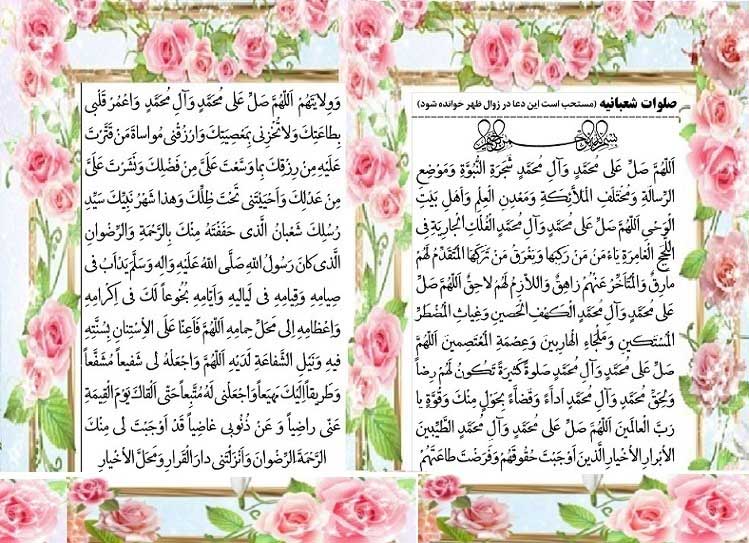 صلوات شعبانیه (مستحب است این دعا در زوال ظهر خوانده شود)
بِسْمِ اللهِ الرَّحْمنِ الرَّحیمِ
اَللّهُمَّ صَلِّ عَلى مُحَمَّدٍ وَآلِ مُحَمَّدٍ شَجَرَةِ النُّبُوَّةِ وَمَوْضِعِ
الرِّسالَةِ وَمُخْتَلَفِ الْمَلآئِکَةِ وَمَعْدِنِ الْعِلْمِ وَاَهْلِ بَیْتِ
الْوَحْىِ اَللّهُمَّ صَلِّ عَلى مُحَمَّدٍ وَآلِ مُحَمَّدٍ الْفُلْکِ الْجارِیَةِ فِى
اللُّجَجِ الْغامِرَةِ یَاْمَنُ مَنْ رَکِبَها وَیَغْرَقُ مَنْ تَرَکَهَا الْمُتَقَدِّمُ لَهُمْ
مارِقٌ وَالْمُتَاَخِّرُ عَنْهُمْ زاهِقٌ وَاللاّزِمُ لَهُمْ لاحِقٌ اَللّهُمَّ صَلِّ
عَلى مُحَمَّدٍ وَآلِ مُحَمَّدٍ الْکَهْفِ الْحَصینِ وَغِیاثِ الْمُضْطَرِّ
الْمُسْتَکینِ وَمَلْجَاءِ الْهارِبینَ وَعِصْمَةِ الْمُعْتَصِمینَ اَللّهُمَّ
صَلِّ عَلى مُحَمَّدٍ وَآلِ مُحَمَّدٍ صَلوةً کَثیرَةً تَکُونُ لَهُمْ رِضاً
وَلِحَقِّ مُحَمَّدٍ وَآلِ مُحَمَّدٍ اَداَّءً وَقَضاَّءً بِحَوْلٍ مِنْکَ وَقُوَّةٍ یا
رَبَّ الْعالَمینَ اَللّهُمَّ صَلِّ عَلى مُحَمَّدٍ وَآلِ مُحَمَّدٍ الطَّیِّبینَ
الاْبْرارِ الاْخْیارِ الَّذینَ اَوْجَبْتَ حُقُوقَهُمْ وَفَرَضْتَ طاعَتَهُمْ
وَوِلایَتَهُمْ اَللّهُمَّ صَلِّ عَلى مُحَمَّدٍ وَآلِ مُحَمَّدٍ وَاعْمُرْ قَلْبى
بِطاعَتِکَ وَلا تُخْزِنى بِمَعْصِیَتِکَ وَارْزُقْنى مُواساةَ مَنْ قَتَّرْتَ
عَلَیْهِ مِنْ رِزْقِکَ بِما وَسَّعْتَ عَلَىَّ مِنْ فَضْلِکَ وَنَشَرْتَ عَلَىَّ
مِنْ عَدْلِکَ وَاَحْیَیْتَنى تَحْتَ ظِلِّکَ وَهذا شَهْرُ نَبِیِّکَ سَیِّدِ
رُسُلِکَ شَعْبانُ الَّذى حَفَفْتَهُ مِنْکَ بِالرَّحْمَةِ وَالرِّضْوانِ
الَّذى کانَ رَسُولُ اللهِ صَلَّى اللهُ عَلَیْهِ وَآلِهِ وَسَلَّمَ یَدْاَبُ فى
صِیامِهِ وَقِیامِهِ فى لَیالیهِ وَاَیّامِهِ بُخُوعاً لَکَ فى اِکْرامِهِ
وَاِعْظامِهِ اِلى مَحَلِّ حِمامِهِ اَللّهُمَّ فَاَعِنّا عَلَى الاِْسْتِنانِ بِسُنَّتِهِ
فیهِ وَنَیْلِ الشَّفاعَةِ لَدَیْهِ اَللّهُمَّ وَاجْعَلْهُ لى شَفیعاً مُشَفَّعاً
وَطَریقاً اِلَیْکَ مَهْیَعاً وَاجْعَلْنى لَهُ مُتَّبِعاً حَتّى اَلْقاکَ یَوْمَ الْقِیمَةِ
عَنّى راضِیاً وَ عَنْ ذُنُوبى غاضِیاً قَدْ اَوْجَبْتَ لى مِنْکَ
الرَّحْمَةَ الرِّضْوانَ وَاَنْزَلْتَنى دارَ الْقَرارِ وَمَحَلَّ الاْخْیارِ